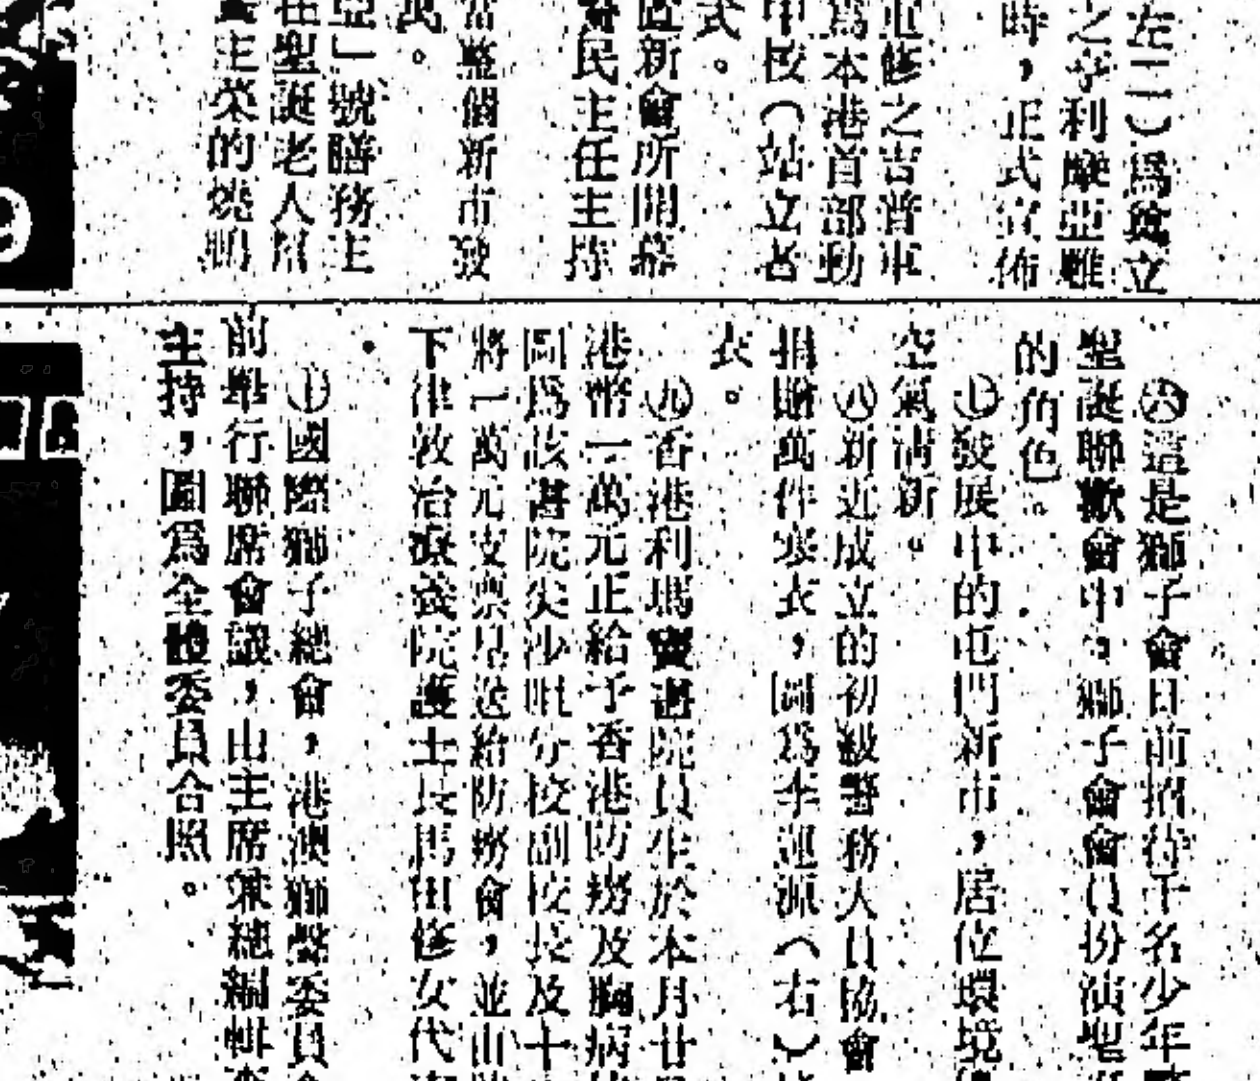 左二）為貧立
之亨利摩亞雕
時，正式宣佈
重修之吉普車
為本港首部動
甲校（站立者
式。
新會所開幕
民主任主持
當整個新市發
萬。
亞」號膳務主
在聖誕老人幫
主菜的燒鵝
㊅這是獅子會日前招待千名少年
聖誕聯歡會中，獅子會會員扮演聖
的角色。
㊆發展中的屯門新市，居位環境
空氣清新。
㊇新近成立的初級警務人員協會
捐贈萬件寒衣，圖為李運源（右）
衣。
㊈香港利瑪竇書院員生於本月廿
港幣一萬元正給予香港防癆及胸病
圖為該書院尖沙咀分校副校長及十
將一萬元支票呈送給防癆會，並由
下律敦治療養院護士長馬田修女代
㊉國際獅子總會，港澳獅聲委員
前舉行聯席會議，由主席兼總編輯
主持，圖為全體委員合照。